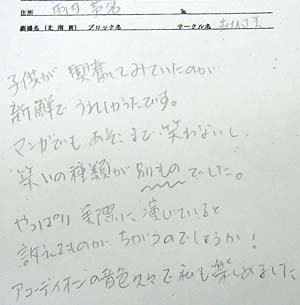 住所 市内
新湯名(北 南 東) ブロック名 サークル名 おひさま
子供が興奮してみていたのが
新鮮でうれしかったです。
マンガでもあそこまで笑わないし、
笑いの種類が別ものでした。
やっぱり実際に演じていると
訴えるものがちがうのでしょうか!
アコーディオンの音色久々で私も楽しめました